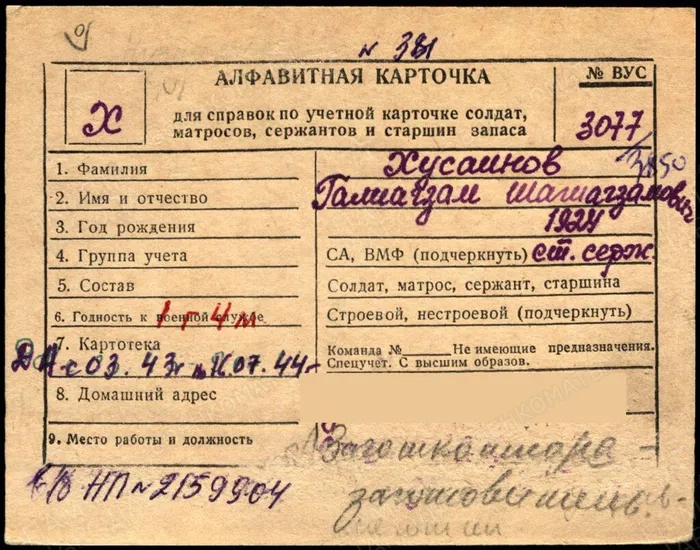 № 381
АЛФАВИТНАЯ КАРТОЧКА
№ ВУС
Х
для справок по учетной карточке солдат,
матросов, сержантов и старшин запаса
3077
/3850
1. Фамилия
Хусаинов
2. Имя и отчество
Галиагзам Шагиагзамович
3. Год рождения
1924
4. Группа учета
СА, ВМФ (подчеркнуть) ст. серж.
5. Состав
Солдат, матрос, сержант, старшина
6. Годность к военной службе
Строевой, нестроевой (подчеркнуть)
7. Картотека
Команда № Не имеющие предназначения.
Спецучет. С высшим образов.
с 03.43г 07.44
8. Домашний адрес
9. Место работы и должность
Заготконтора -
заготовитель
НП № 2159904